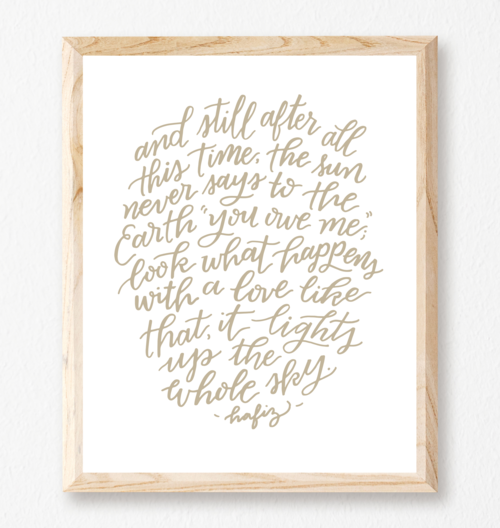 and still after all
this time, the sun
never says to the
Earth "you owe me;"
look what happens
with a love like
that, it lights
up the
whole sky.
-hafiz-